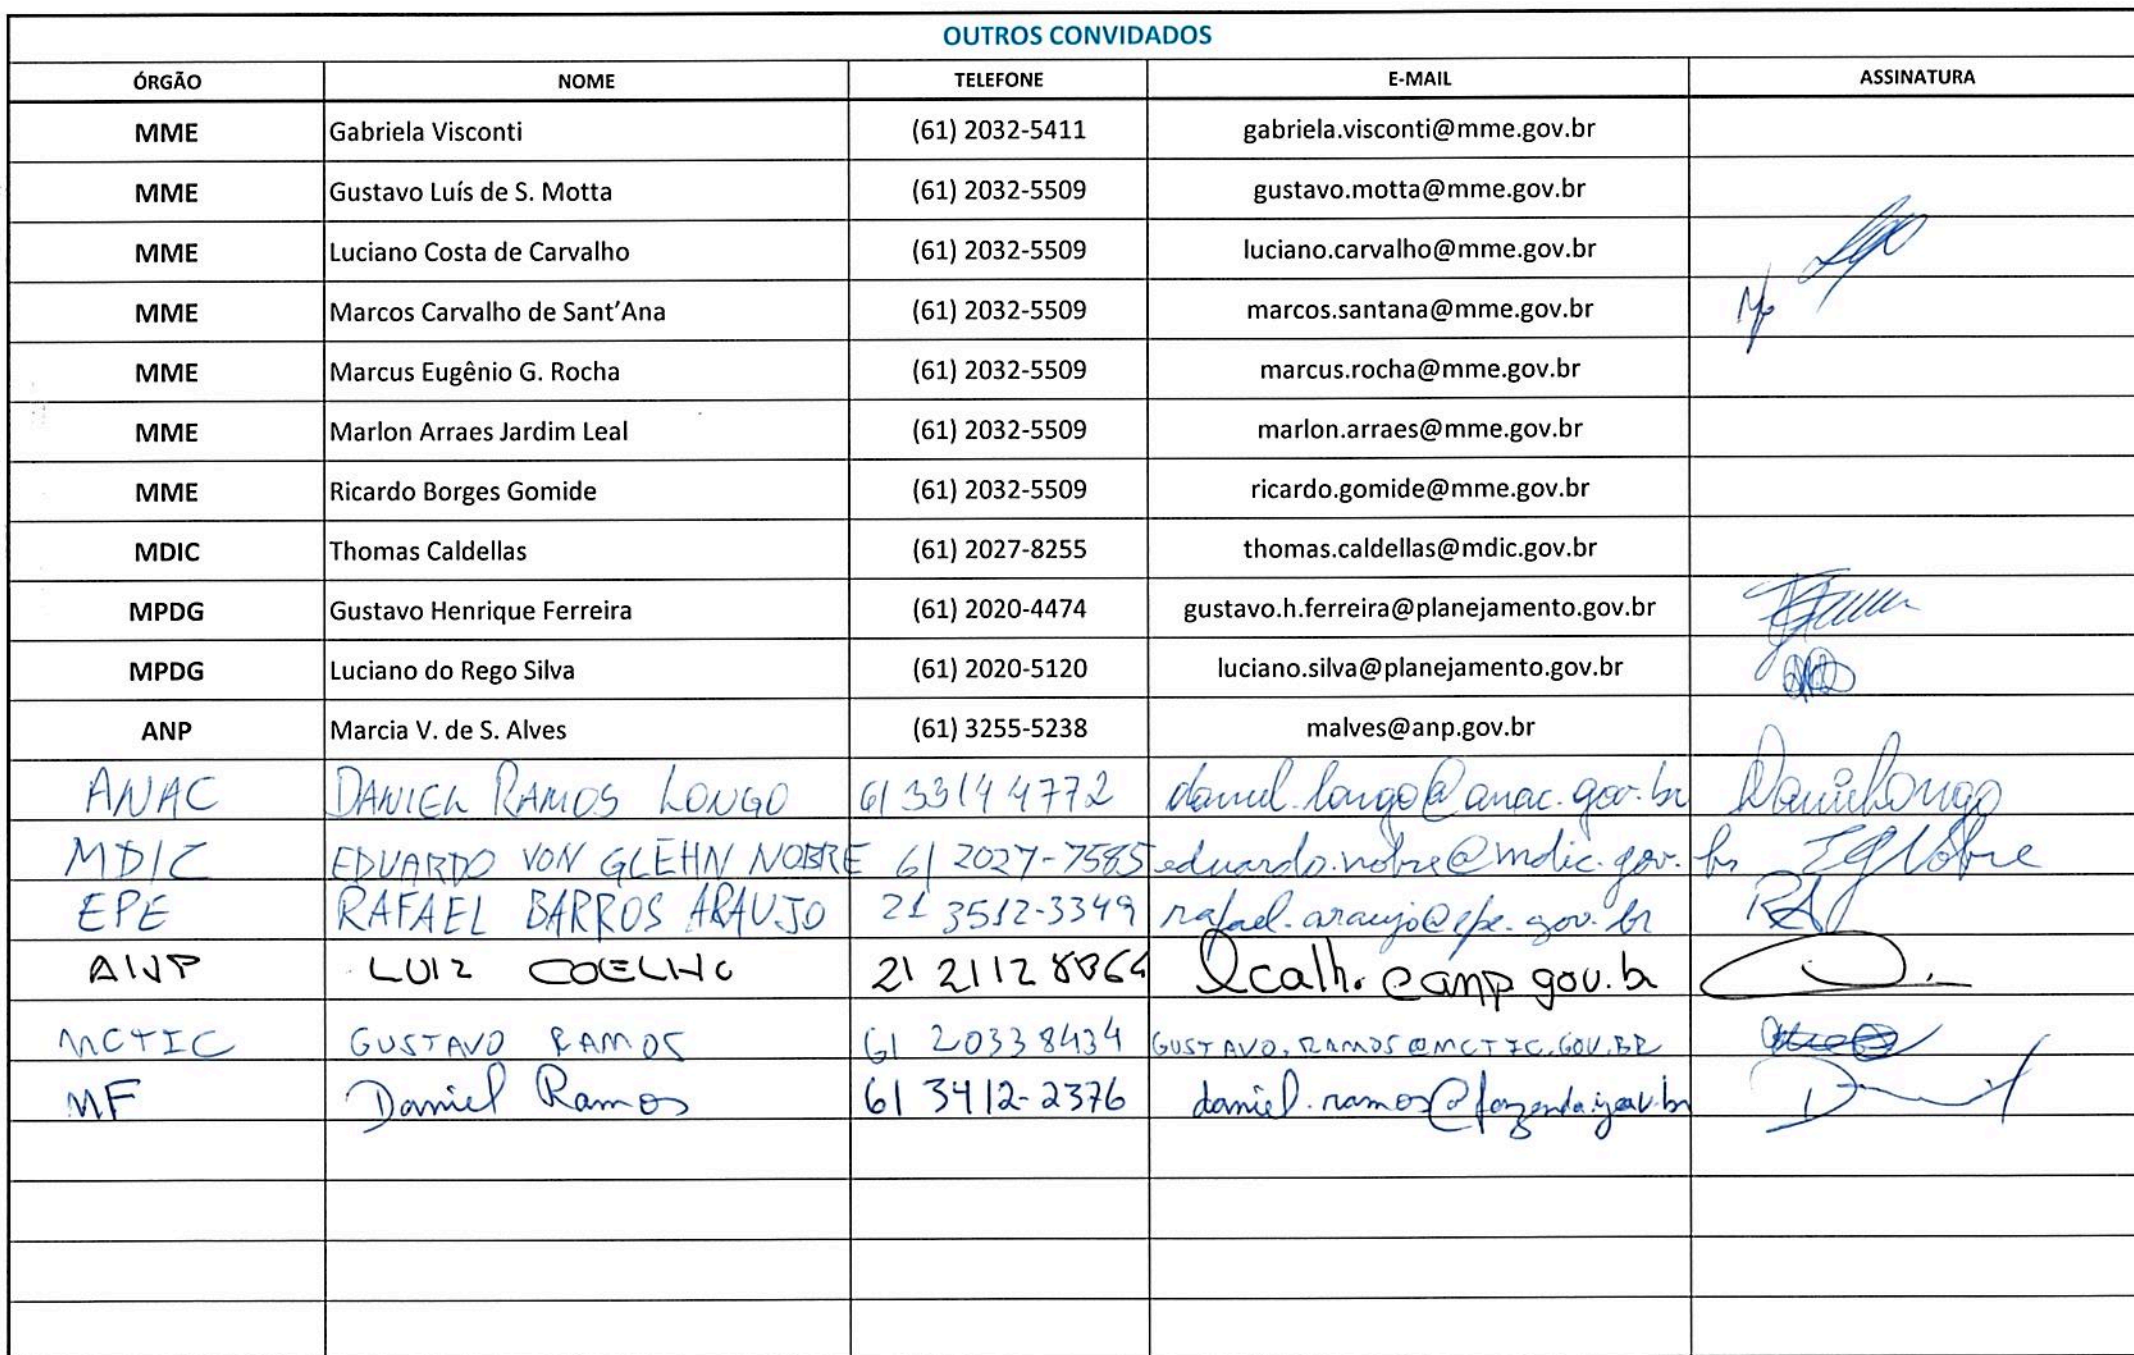 OUTROS CONVIDADOS
ÓRGÃO NOME TELEFONE E-MAIL ASSINATURA
MME Gabriela Visconti (61) 2032-5411 gabriela.visconti@mme.gov.br
MME Gustavo Luís de S. Motta (61) 2032-5509 gustavo.motta@mme.gov.br
MME Luciano Costa de Carvalho (61) 2032-5509 luciano.carvalho@mme.gov.br
MME Marcos Carvalho de Sant’Ana (61) 2032-5509 marcos.santana@mme.gov.br
MME Marcus Eugênio G. Rocha (61) 2032-5509 marcus.rocha@mme.gov.br
MME Marlon Arraes Jardim Leal (61) 2032-5509 marlon.arraes@mme.gov.br
MME Ricardo Borges Gomide (61) 2032-5509 ricardo.gomide@mme.gov.br
MDIC Thomas Caldellas (61) 2027-8255 thomas.caldellas@mdic.gov.br
MPDG Gustavo Henrique Ferreira (61) 2020-4474 gustavo.h.ferreira@planejamento.gov.br
MPDG Luciano do Rego Silva (61) 2020-5120 luciano.silva@planejamento.gov.br
ANP Marcia V. de S. Alves (61) 3255-5238 malves@anp.gov.br
ANAC DANIEL RAMOS LONGO 61 3314 4772 daniel.longo@anac.gov.br Daniel Longo
MDIC EDUARDO VON GLEHN NOBRE 61 2027-7585 eduardo.nobre@mdic.gov.br
EPE RAFAEL BARROS ARAUJO 21 3512-3349 rafael.araujo@epe.gov.br
ANP LUIZ COELHO 21 2112 8864
MCTIC GUSTAVO RAMOS 61 2033 8434 GUSTAVO.RAMOS@MCTIC.GOV.BR
MF Daniel Ramos 61 3412-2376 daniel.ramos@fazenda.gov.br